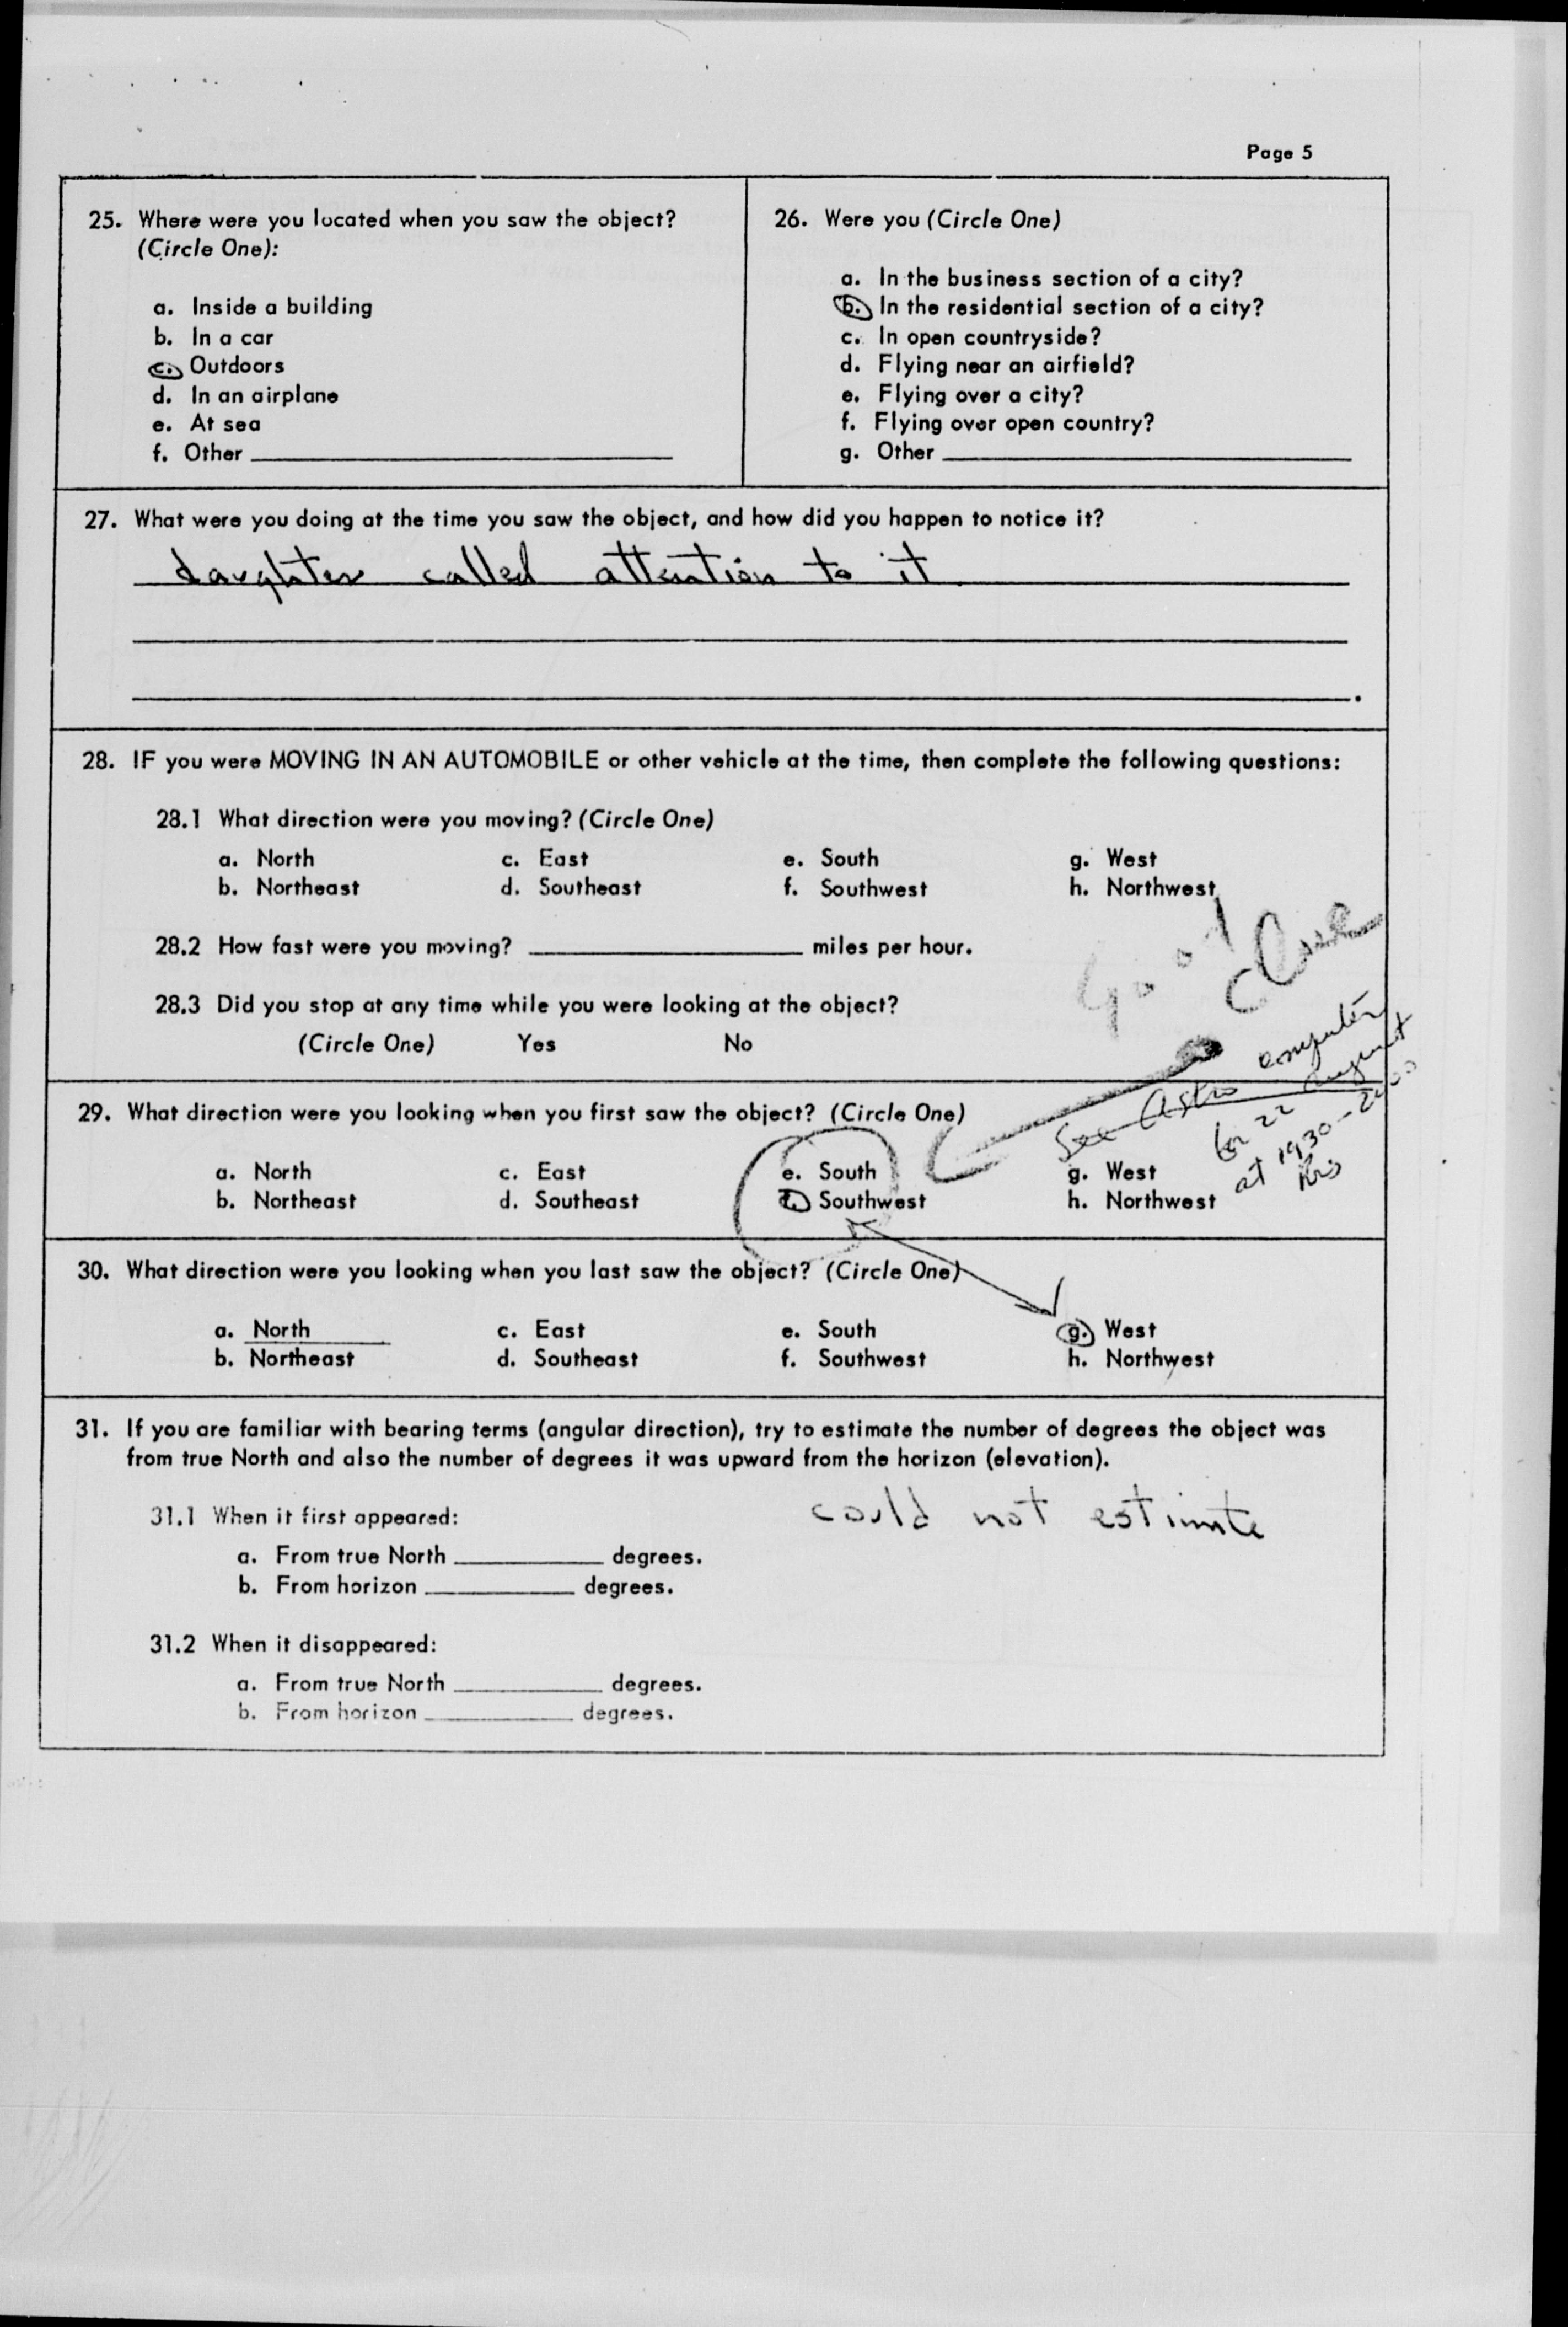 Page 5
25. Where were you located when you saw the object?
(Circle One):
a. Inside a building
b. In a car
c. Outdoors
d. In an airplane
e. At sea
f. Other
26. Were you (Circle One)
a. In the business section of a city?
b. In the residential section of a city?
c. In open countryside?
d. Flying near an airfield?
e. Flying over a city?
f. Flying over open country?
g. Other
27. What were you doing at the time you saw the object, and how did you happen to notice it?
daughter called attention to it
28. IF you were MOVING IN AN AUTOMOBILE or other vehicle at the time, then complete the following questions:
28.1 What direction were you moving? (Circle One)
a. North c. East e. South g. West
b. Northeast d. Southeast f. Southwest h. Northwest
28.2 How fast were you moving? miles per hour.
28.3 Did you stop at any time while you were looking at the object?
(Circle One) Yes No
Good Clue
See Astro computer
for 22 August
at 1930-2000
hrs
29. What direction were you looking when you first saw the object? (Circle One)
a. North c. East e. South g. West
b. Northeast d. Southeast f. Southwest h. Northwest
30. What direction were you looking when you last saw the object? (Circle One)
a. North c. East e. South g. West
b. Northeast d. Southeast f. Southwest h. Northwest
31. If you are familiar with bearing terms (angular direction), try to estimate the number of degrees the object was
from true North and also the number of degrees it was upward from the horizon (elevation).
31.1 When it first appeared: could not estimate
a. From true North degrees.
b. From horizon degrees.
31.2 When it disappeared:
a. From true North degrees.
b. From horizon degrees.